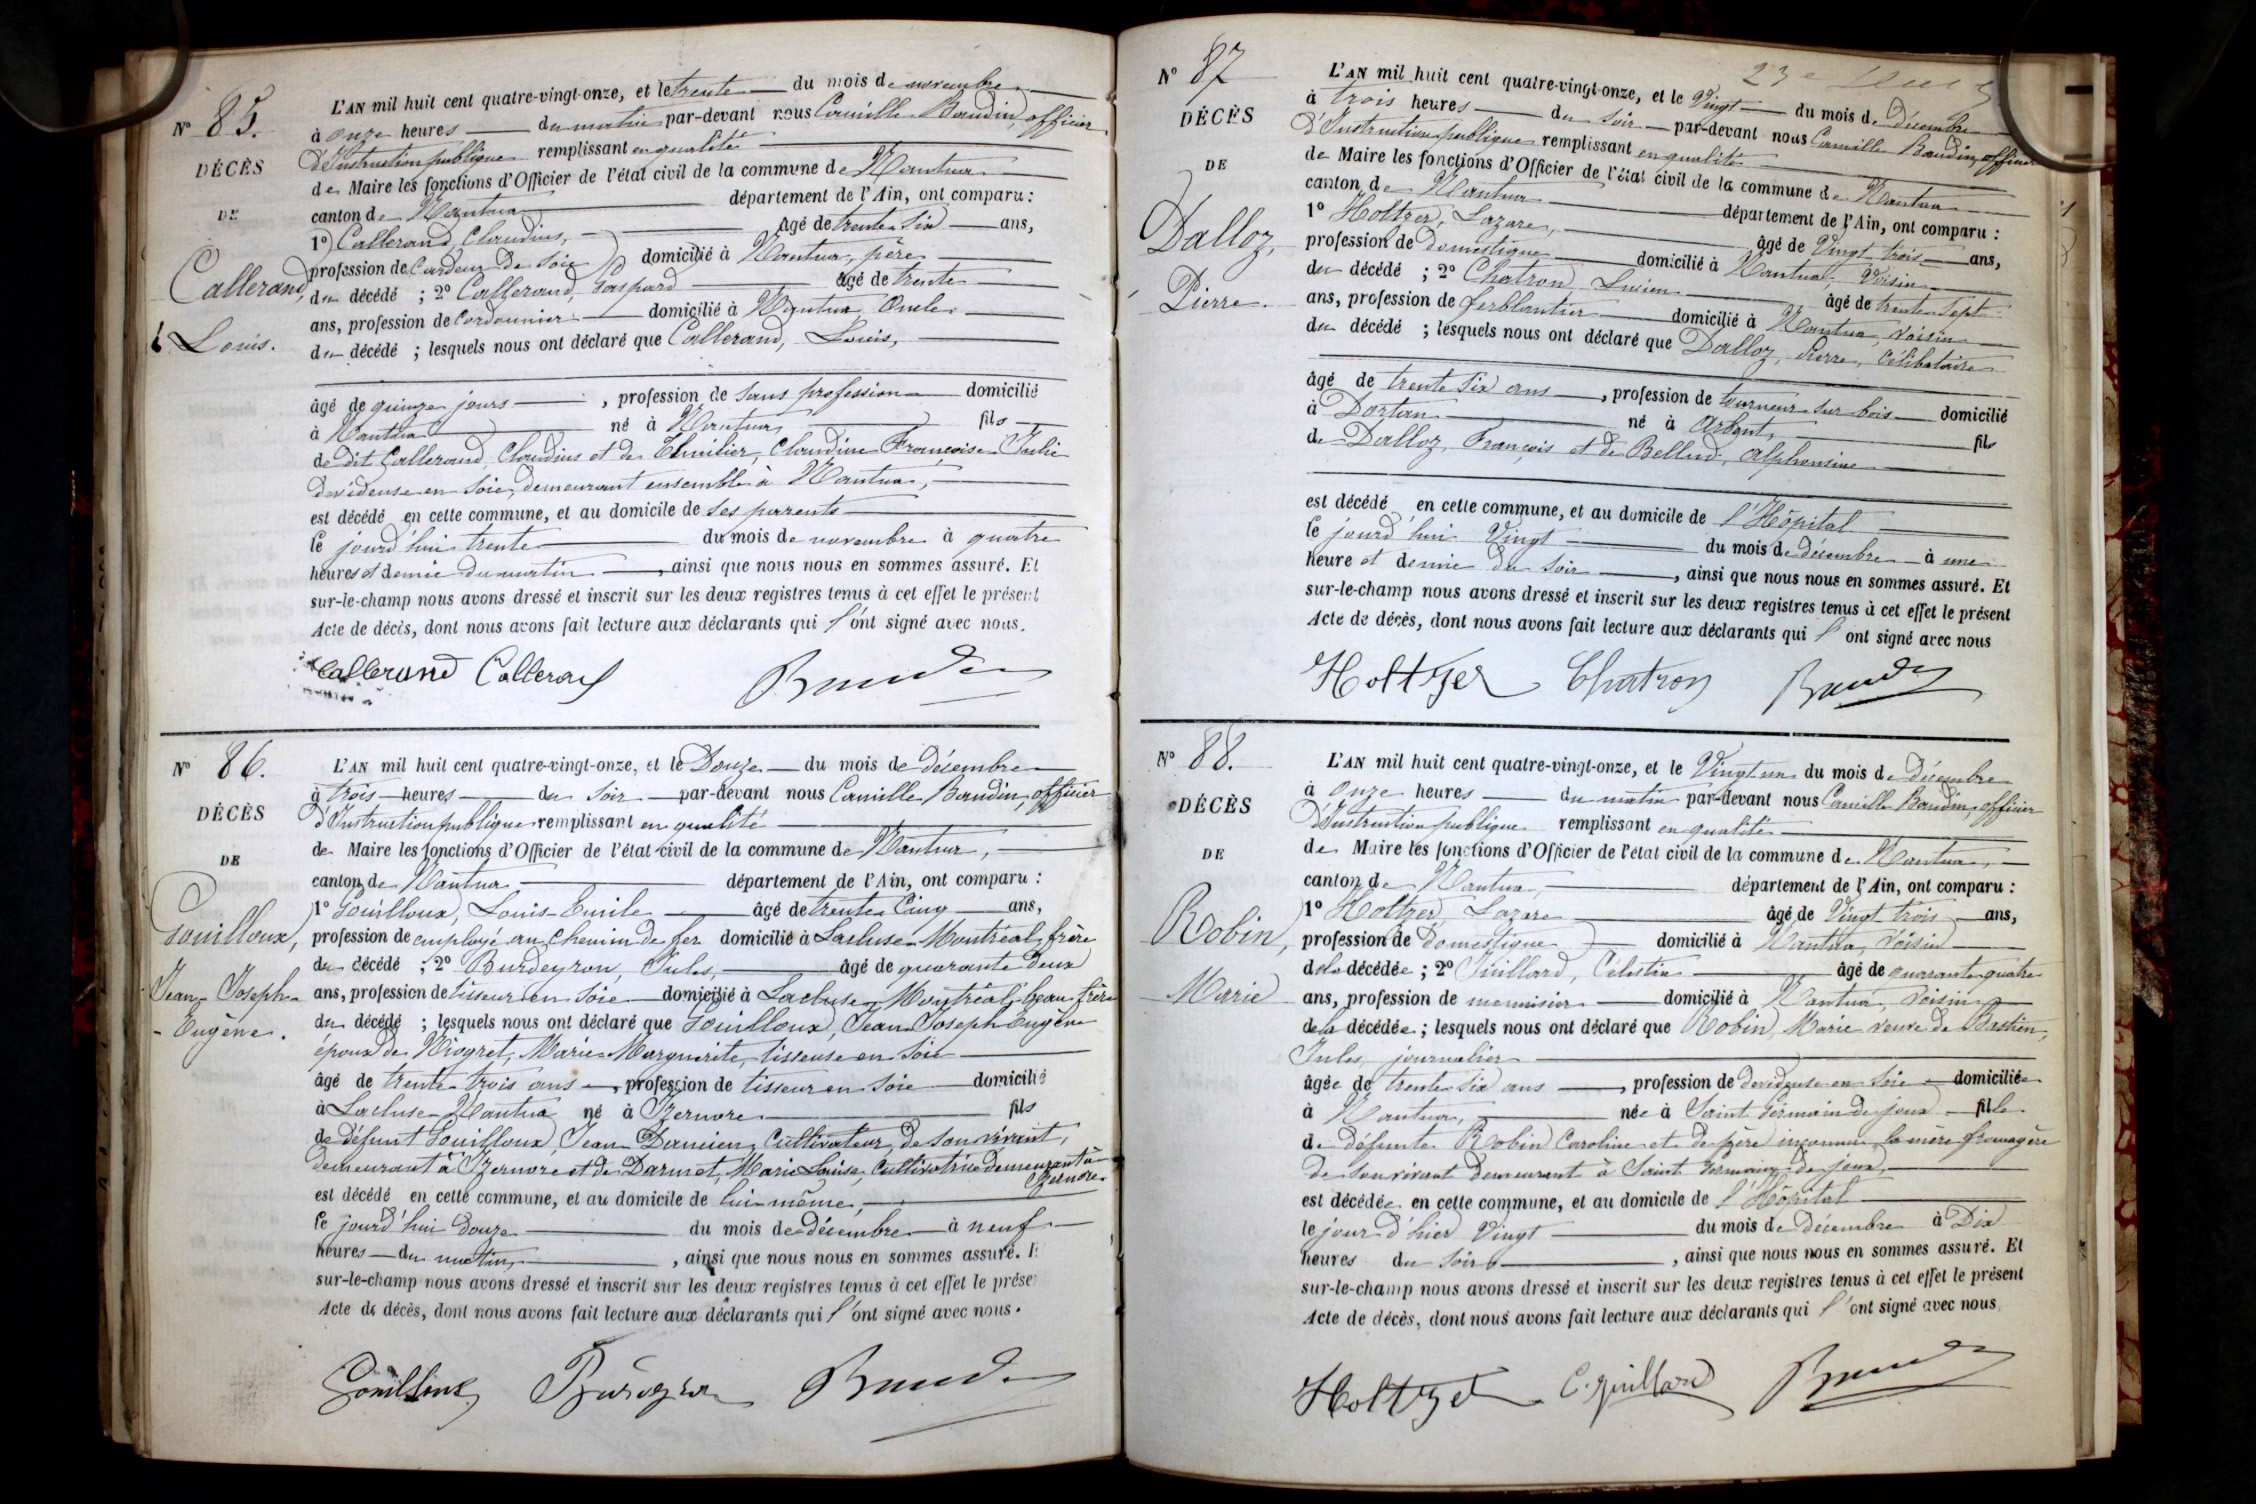 N° 85.
DÉCÈS
DE
Callerand,
Louis.
L'AN mil huit cent quatre-vingt-onze, et le trente du mois de novembre
à onze heures du matin par-devant nous Camille Baudin, officier
d'Instruction publique remplissant en qualité
de Maire les fonctions d'Officier de l'état civil de la commune de Nantua
canton de Nantua département de l'Ain, ont comparu :
1° Callerand, Claudius, âgé de trente six ans,
profession de Cardeur de soie domicilié à Nantua, père
du décédé ; 2° Callerand, Gaspard âgé de trente
ans, profession de Cordonnier domicilié à Nantua, Oncle
du décédé ; lesquels nous ont déclaré que Callerand, Louis,
âgé de quinze jours , profession de sans profession domicilié
à Nantua né à Nantua, fils
de dit Callerand, Claudius et de Claudine Françoise Julie
dévideuse en soie, demeurant ensemble à Nantua,
est décédé en cette commune, et au domicile de ses parents
le jourd'hui trente du mois de novembre à quatre
heures et demie du matin , ainsi que nous nous en sommes assuré. Et
sur-le-champ nous avons dressé et inscrit sur les deux registres tenus à cet effet le présent
Acte de décès, dont nous avons fait lecture aux déclarants qui l'ont signé avec nous.
Callerand Callerand Baudin
N° 86.
DÉCÈS
DE
Gouilloux,
Jean-Joseph-
Eugène.
L'AN mil huit cent quatre-vingt-onze, et le Douze du mois de décembre
à trois heures du soir par-devant nous Camille Baudin, officier
d'Instruction publique remplissant en qualité
de Maire les fonctions d'Officier de l'état civil de la commune de Nantua,
canton de Nantua, département de l'Ain, ont comparu :
1° Gouilloux, Louis-Emile âgé de trente Cinq ans,
profession de employé au Chemin de fer domicilié à Lacluse-Montréal, frère
du décédé ; 2° Burdeyron, Jules, âgé de quarante deux
ans, profession de tisseur en soie domicilié à Lacluse-Montréal, beau-frère
du décédé ; lesquels nous ont déclaré que Gouilloux, Jean-Joseph-Eugène
époux de Niogret, Marie-Marguerite, tisseuse en soie
âgé de trente-trois ans , profession de tisseur en soie domicilié
à Lacluse-Nantua né à Izernore fils
de défunt Gouilloux, Jean-Damien, Cultivateur, de son vivant,
demeurant à Izernore et de Darmet, Marie Louise, Cultivatrice demeurant à
Izernore
est décédé en cette commune, et au domicile de lui-même,
le jourd'hui douze du mois de décembre à neuf
heures du matin, , ainsi que nous nous en sommes assuré. E
sur-le-champ nous avons dressé et inscrit sur les deux registres tenus à cet effet le prése
Acte de décès, dont nous avons fait lecture aux déclarants qui l'ont signé avec nous.
Gouilloux Burdeyron Baudin
N° 87
DÉCÈS
DE
Dalloz,
Pierre.
L'AN mil huit cent quatre-vingt-onze, et le Vingt du mois de Décembre
à trois heures du soir par-devant nous Camille Baudin, officier
d'Instruction publique remplissant en qualité
de Maire les fonctions d'Officier de l'état civil de la commune de Nantua
canton de Nantua département de l'Ain, ont comparu :
1° Holtzer, Lazare, âgé de Vingt trois ans,
profession de domestique domicilié à Nantua, Voisin
du décédé ; 2° Chatron, Lucien âgé de trente sept
ans, profession de ferblantier domicilié à Nantua, voisin
du décédé ; lesquels nous ont déclaré que Dalloz, Pierre, Célibataire
âgé de trente six ans , profession de tourneur sur bois domicilié
à Dortan né à Arbent, fils
de Dalloz, François et de Bellud, Alphonsine
est décédé en cette commune, et au domicile de l'Hôpital
le jourd'hui Vingt du mois de décembre à une
heure et demie du soir , ainsi que nous nous en sommes assuré. Et
sur-le-champ nous avons dressé et inscrit sur les deux registres tenus à cet effet le présent
Acte de décès, dont nous avons fait lecture aux déclarants qui l'ont signé avec nous
Holtzer Chatron Baudin
N° 88.
DÉCÈS
DE
Robin,
Marie
L'AN mil huit cent quatre-vingt-onze, et le Vingt un du mois de Décembre
à onze heures du matin par-devant nous Camille Baudin, officier
d'Instruction publique remplissant en qualité
de Maire les fonctions d'Officier de l'état civil de la commune de Nantua,
canton de Nantua, département de l'Ain, ont comparu :
1° Holtzer, Lazare âgé de Vingt trois ans,
profession de Domestique domicilié à Nantua, voisin
de la décédée ; 2° Juillard, Célestin âgé de quarante quatre
ans, profession de menuisier domicilié à Nantua, voisin
de la décédée ; lesquels nous ont déclaré que Robin, Marie veuve de Bastien,
Jules, journalier
âgée de trente six ans , profession de dévideuse en soie domiciliée
à Nantua, née à Saint Germain de joux fille
de défunte Robin Caroline et de père inconnu la mère fromagère
de son vivant demeurant à Saint Germain de joux,
est décédée en cette commune, et au domicile de l'Hôpital
le jour d'hier Vingt du mois de décembre à Dix
heures du soir , ainsi que nous nous en sommes assuré. Et
sur-le-champ nous avons dressé et inscrit sur les deux registres tenus à cet effet le présent
Acte de décès, dont nous avons fait lecture aux déclarants qui l'ont signé avec nous
Holtzer C. Juillard Baudin